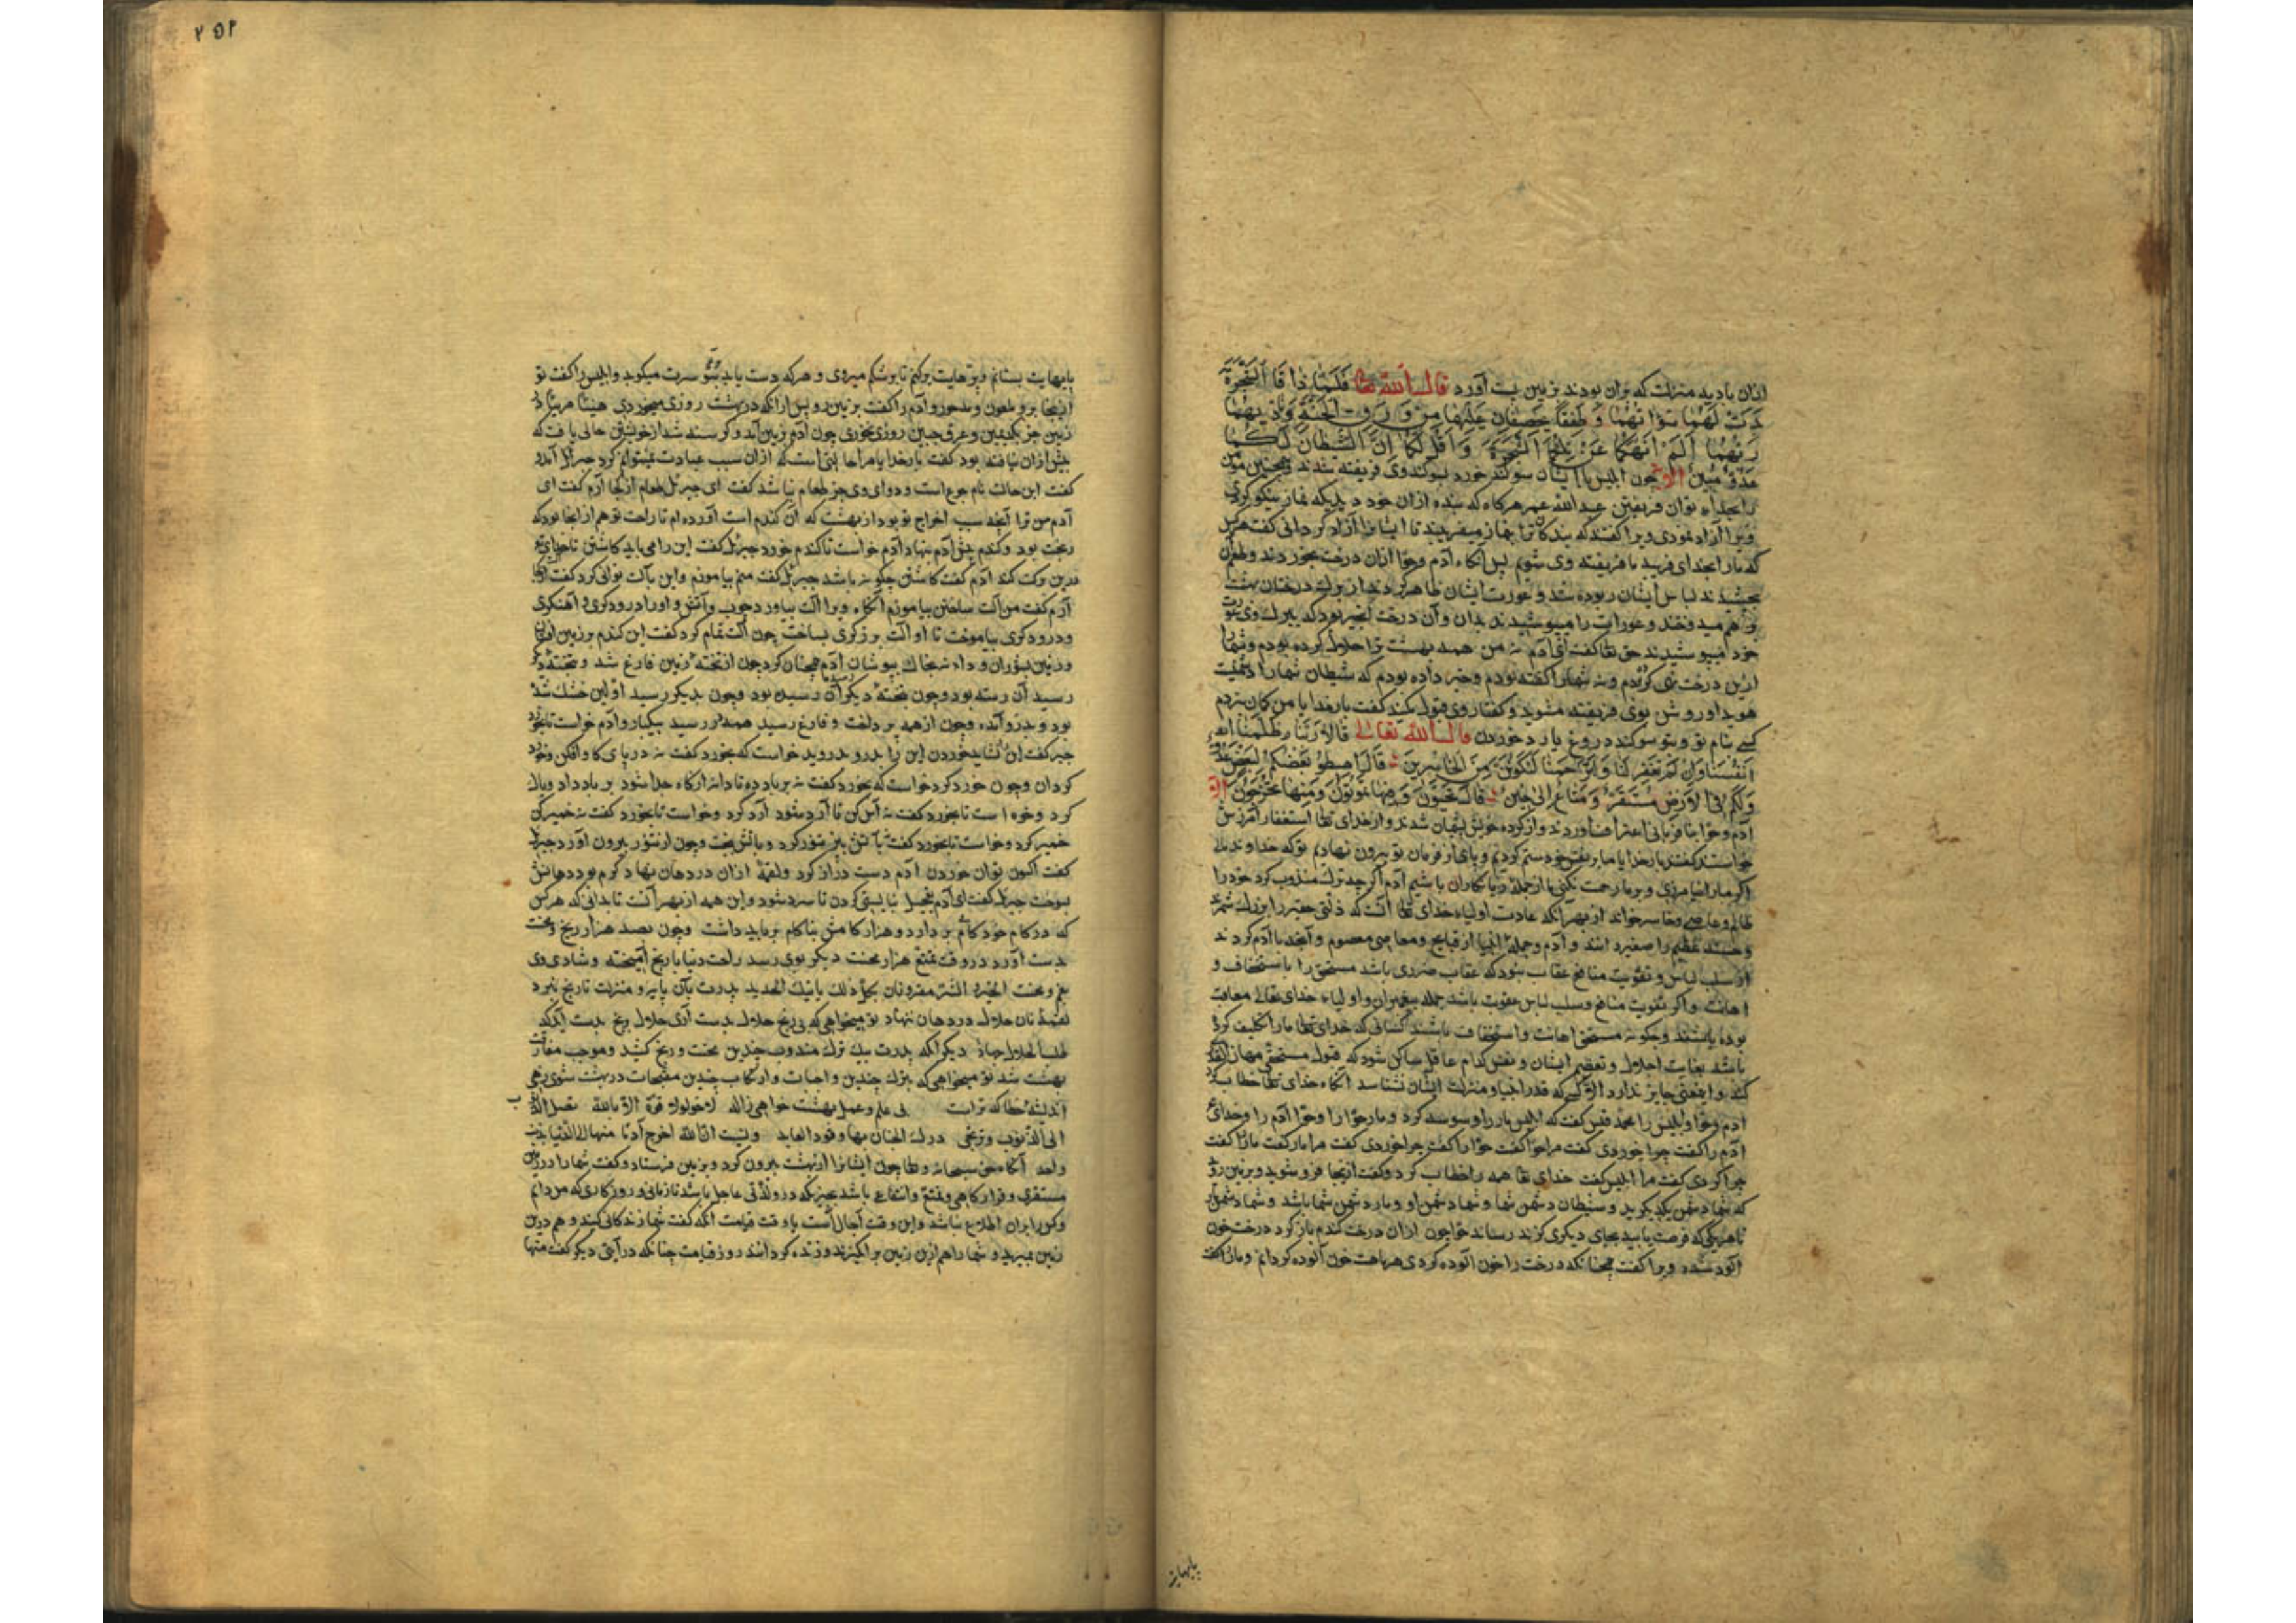 ازان بادید منزلت که بران بودند بزمین پست آورد قال الله تعا فَلَمَّا ذَاقَا الشَّجَرَةَ
بَدَتْ لَهُمَا سَوْاتُهُمَا وَطَفِقَا يَخْصِفَانِ عَلَيْهِمَا مِنْ وَرَقِ الْجَنَّةِ وَنَادَيهُمَا
رَبُّهُمَا اَلَمْ اَنْهَكُمَا عَنْ تِلْكُمَا الشَّجَرَةِ وَاَقُلْ لَكُمَا اِنَّ الشَّيْطَانَ لَكُمَا
عَدُوٌّ مُبِينٌ الآیه چون ابلیس با ایشان سوکند خورد بسوکند وی فریفته شدند و همچنین مومن
را بخدای توان فریفتن عبدالله عمر هرکاه که بنده ازان خود دیدی که نماز نیکو کردی
ویرا آزاد نمودی ویرا کفتند که بندکان ترا بنماز میفریبند تا ایشانرا آزاد کردانی کفت هرکس
که ما را بخدای فریبد ما فریفته وی شویم پس آنکاه آدم وحوا ازان درخت بخوردند وطعم آن
بچشیدند لباس ایشان ربوده شد و عورت ایشان ظاهر کردید از برک درختان بهشت
بر هم میدوختند و عورات را میپوشیدند بدان وآن درخت انجیر بود که ببرک وی عورت
خود میپوشیدند حق تعا کفت ای آدم نه من همه بهشت ترا حلال کرده بودم وشما را
ازین درخت نهی کردم ونه شما را کفته بودم وخبر داده بودم که شیطان شما را دشمنیست
هویدا وروشن بوی فریفته مشوید وکفتار وی قبول مکنید کفت بارخدایا من کمان نبردم
کسی بنام تو وبتو سوکند دروغ یارد خوردن قال الله تعالی قَالَا رَبَّنَا ظَلَمْنَا
اَنْفُسَنَا وَاِنْ لَمْ تَغْفِرْ لَنَا وَتَرْحَمْنَا لَنَكُونَنَّ مِنَ الْخَاسِرِينَ قَالَ اهْبِطُوا بَعْضُكُمْ لِبَعْضٍ عَدُوٌّ
وَلَكُمْ فِي الْاَرْضِ مُسْتَقَرٌّ وَمَتَاعٌ اِلَى حِينٍ قَالَ فِيهَا تَحْيَوْنَ وَفِيهَا تَمُوتُونَ وَمِنْهَا تُخْرَجُونَ الآیه
آدم وحوا بنافرمانی اعتراف آوردند واز کرده خویش پشیمان شدند واز خدای تعا استغفار آمرزش
خواستند کفتند بارخدایا ما بر نفس خود ستم کردیم وپای از فرمان تو بیرون نهادیم توکه خداوند مایی
اکر ما را نیامرزی وبر ما رحمت نکنی ما ازجمله زیانکاران باشیم آدم اکرچه ترک مندوب کرد خود را
ظالم وعاصی وخاسر خواند از بهر آنکه عادت اولیاء خدای تعا آنست که ذلتی حقیر را بزرک شمرند
وحسنه عظیم را صغیره دانند و آدم وجمله انبیا از قبایح ومعاصی معصوم وآنچه با آدم کردند
از سلب لباس وتفویت منافع عقاب نبود که عقاب ضرری باشد مستحق را باستخفاف و
اهانت واکر تفویت منافع وسلب لباس عقوبت باشد جمله پیغمبران واولیاء خدای تعالی معاقب
بوده باشند وچکونه مستحق اهانت واستخفاف باشند کسانی که خدای تعا ما را تکلیف کرده
باشد بغایت اجلال وتعظیم ایشان ونفس کدام عاقل ساکن شود که قول مستحق مهان
کند واین معنی جایز ندارد الا کسی که قدر انبیا ومنزلت ایشان نشناسد آنکاه خدای تعا خطاب کرد
آدم وحوا وابلیس را محمد قیس کفت که ابلیس مار را وسوسه کرد ومار حوا را وحوا آدم را وخدای
آدم را کفت چرا خوردی کفت مرا حوا کفت حوا را کفت چرا خوردی کفت مرا مار کفت مار را کفت
چرا کردی کفت مرا ابلیس کفت خدای تعا همه را خطاب کرد وکفت ازینجا فرو شوید وبزمین روید
که شما دشمن یکدیکرید وشیطان دشمن شما وشما دشمن او ومار دشمن شما باشد وشما دشمن
تا هریکی که فرصت یابید بجای دیکری کزند رساند حوا چون ازان درخت کندم باز کرد درخت خون
آلود شد ویرا کفت همچنانکه درخت را خون آلوده کردی هر ماهت خون آلوده کردانم ومار را کفت
پایهایت
۲۵۲
پایهایت بستانم وپرهایت برکنم تا برشکم میروی وهرکه دست یابد بتو سرت میکوبد وابلیس را کفت تو
ازینجا برو ملعون ومدحور وآدم را کفت بزمین رو پس ازانکه در بهشت روزی میخوردی هنیئا مریئا در
زمین جز بکد یمین وعرق جبین روزی نخوری چون آدم بزمین آمد وکرسنه شد از خویشتن حالی یافت که
پیش ازان نیافته بود کفت بارخدایا مرا حالتی است که ازان سبب عبادت نمیتوانم کرد جبرئیل آمد و
کفت این حالت نام جوع است ودوای وی جز طعام نباشد کفت ای جبرئیل طعام از کجا آرم کفت ای
آدم من ترا آنچه سبب اخراج تو بود از بهشت که آن کندم است آورده ام تا راحت تو هم ازانجا بود که
رنجت بود وکندم پیش آدم بنهاد آدم خواست تا کندم خورد جبرئیل کفت این را می باید کاشتن تا خدای تع
درین برکت کند آدم کفت کاشتن چکونه باشد جبرئیل کفت منم بیاموزم واین بآلت توانی کرد کفت از کجا
آرم کفت من آلت ساختن بیاموزم آنکاه ویرا آلت بیاورد چوب وآتش واو را درودکری وآهنکری
ودرودکری بیاموخت تا او آلت برزکری بساخت چون آلت تمام کرد کفت این کندم بر زمین افشان
وزمین بشوران ودانه بخاک بپوشان آدم همچنان کرد چون از تخته زمین فارغ شد وبتخته دیکر
رسید آن رسته بود وچون بتخته دیکر آن رسیده بود وچون بدیکر رسید اولین خشک شده
بود وبدرو آمده وچون ازهمه پرداخت وفارغ رسید همه در رسید بیکبار وآدم خواست تا بخورد
جبرئیل کفت این نشاید خوردن این را بدرو بدروید خواست که بخورد کفت نه در پای کاو افکن وخرد
کردان وچون خرد کرد خواست که بخورد کفت نه بر باد ده تا دانه از کاه جدا شود بر باد داد وپاک
کرد وخواست تا بخورد کفت نه آس کن تا آرد شود آرد کرد وخواست تا بخورد کفت نه خمیر کن
خمیر کرد وخواست تا بخورد کفت بآتش بپز تنور کرد وبآتش پخت وچون از تنور بیرون آورد جبرئیل
کفت اکنون توان خوردن آدم دست دراز کرد ولقمه ازان در دهان نهاد کرم بود دهانش
بسوخت جبرئیل کفت ای آدم تعجیل نبایستی کردن تا سرد شود واین همه از بهر آنست تا بدانی که هرکس
که در کام خود کامی بردارد وهزار کامش بناکام برباید داشت وچون بصد هزار رنج ومحنت
بدست آورد در وقت تمتع هزار محنت دیکر بوی رسد راحت دنیا با رنج آمیخته وشادی وی
بغم ومحنت الخیر والشر مقرونان پدرت بآن پایه ومنزلت تا رنج نبرد
لقمه نان حلال در دهان ننهاد تو میخواهی که بی رنج حلال بدست آری حلال برنج بدست آید که
طلب الحلال جهاد دیکر آنکه پدرت بیک ترک مندوب چندین محنت ورنج کشید وموجب مفارقت
بهشت شد تو میخواهی که بترک چندین واجبات وارتکاب چندین مقبحات در بهشت شوی زهی
اندیشه خطا که تراست بی علم وعمل بهشت خواهی زاله لا حول ولا قوة الا بالله تصل الذنوب
الی الذنوب وترتجی درک الجنان بها وفوز العابد ونسیت ان الله اخرج آدما منها الی الدنیا بذنب
واحد آنکاه حق سبحانه وتعا چون ایشانرا از بهشت بیرون کرد وبزمین فرستاد وکفت شما را در زمین
مستقری وقرارکاهی وتمتع وانتفاعی باشد بچیزیکه درو لذتی عاجل باشد تا زمانی وروزکاری که من دانم
وکس را بران اطلاع نباشد واین وقت آجال است یا وقت قیامت آنکه کفت شما زندکانی کنید وهم درین
زمین بمیرید وشما را هم ازین زمین برانکیزند وزنده کردانند روز قیامت چنانکه در آیتی دیکر کفت منها